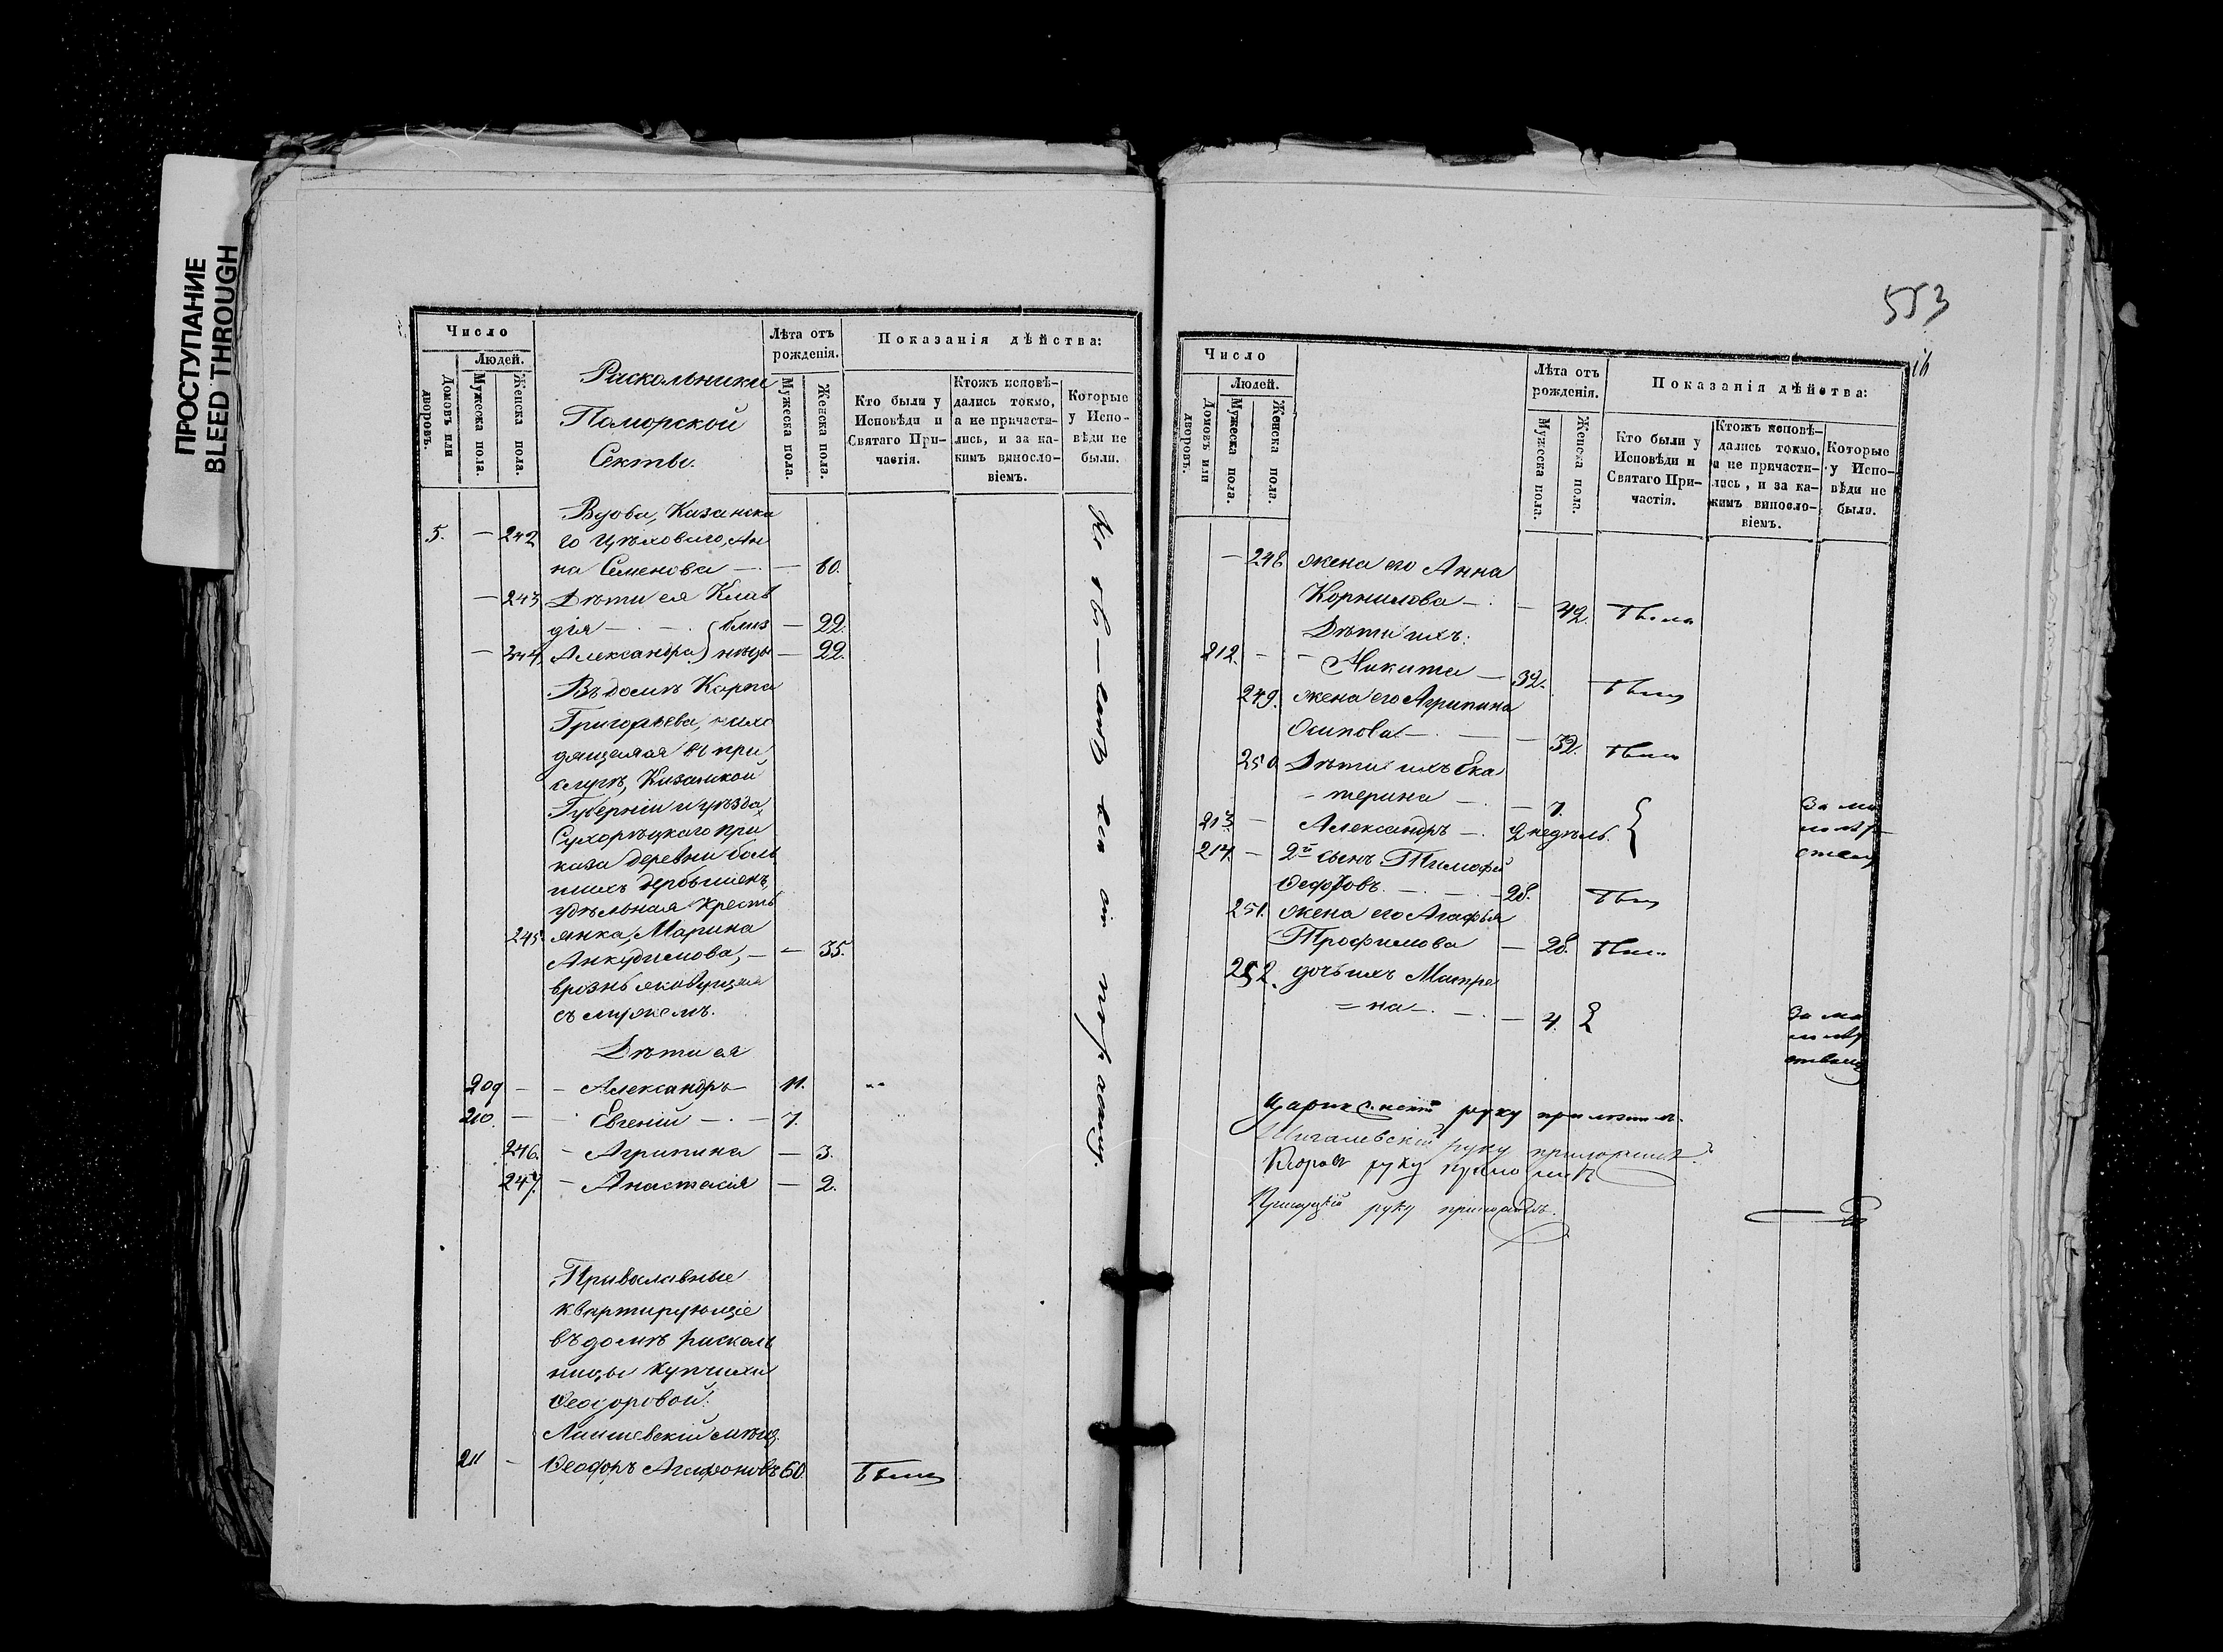 ПРОСТУПАНИЕ
BLEED THROUGH
Число
Людей.
Домовъ или дворовъ.
Мужеска пола.
Женска пола.
Раскольники
Поморской
Секты.
Лѣта отъ
рожденія.
Мужеска пола.
Женска пола.
Показанія дѣйства:
Кто были у
Исповѣди и
Святаго При-
частія.
Ктожъ исповѣ-
дались токмо,
а не причасти-
лись, и за ка-
кимъ виносло-
віемъ.
Которые
у Испо-
вѣди не
были.
Вдова, Казанска
5. — 242 го Цѣховаго, Ан
на Семенова — — 60.
— 243 Дѣти ея Клав
дія — — близ — 22.
— 244 Александра нецы — 22.
Въ домѣ Карпа
Григорьева, нахо
дящаяся въ при
слугѣ, Казанской
Губерніи и уѣзда
Сухорѣцкаго при
каза деревни боль
шихъ Дербышекъ,
удѣльная кресть
245. янка, Марина
Анкудинова, — — 35.
врознь живущая
съ мужемъ.
Дѣти ея
209 — — Александръ — 11.
210. — Евгеній — — 7.
246. — Агрипина — 3.
247. — Анастасія — 2.
Православные
квартирующіе
въ домѣ расколь
ницы купчихи
Ѳеодоровой:
Лаишевскій мѣщ.
211 — Ѳеодоръ Агафоновъ 60. былъ
553
16
Число
Людей.
Домовъ или дворовъ.
Мужеска пола.
Женска пола.
Лѣта отъ
рожденія.
Мужеска пола.
Женска пола.
Показанія дѣйства:
Кто были у
Исповѣди и
Святаго При-
частія.
Ктожъ исповѣ-
дались токмо,
а не причасти-
лись, и за ка-
кимъ виносло-
віемъ.
Которые
у Испо-
вѣди не
были.
— 248 жена его Анна
Корнилова — — 42. была
Дѣти ихъ:
212. — — Никита — 32. былъ
249. жена его Агрипина
Осипова — — 32. была
250 Дѣти ихъ Ека
терина — — 7. За ма
213. — Александръ — 2 недѣль. лолѣт
214. — 2й сынъ Тимофей ствомъ
Ѳедоровъ — — 28. былъ
251. жена его Агафья
Трофимова — 28. была
252. дочь ихъ Матре
= на — — 4. За ма
лолѣт
ствомъ
руку приложилъ.
руку приложилъ.
руку приложилъ
руку приложилъ.